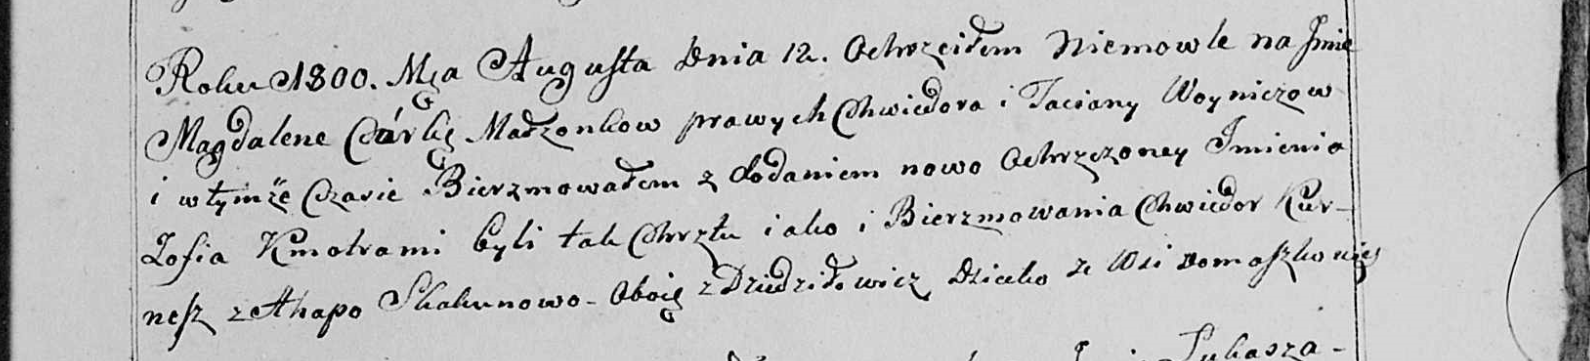 Roku 1800. Mca Augusta Dnia 12. Ochrzciłem Niemowle na Jmie
Magdalene Córkę Małzonkow prawych Chwiedora i Taciany Woyniczow
i w tymże Czasie Bierzmowałem z dodaniem nowo Ochrzczoney Jmienia
Zofia Kmotrami byli tak Chrztu iako i Bierzmowania Chwiedor Kur-
nesz z Ahapo Skakunowo - Oboię z Dziedziłowicz, Dziecko ze Wsi Domaszkowicz
Łukasza -